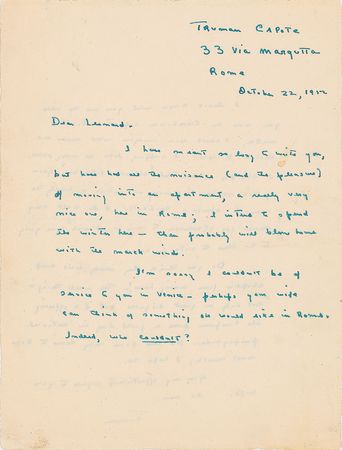 Truman Capote
33 Via Margutta
Rome
October 22, 1952
Dear Leonard.
I have meant so long to write you,
but have had all the nuisance (and the pleasure)
of moving into an apartment, a really very
nice one, here in Rome; I intend to spend
the winter here — then probably will blow home
with the march winds.
I'm sorry I couldn't be of
service to you in Venice — perhaps your wife
can think of something she would like in Rome.
Indeed, who couldn't?